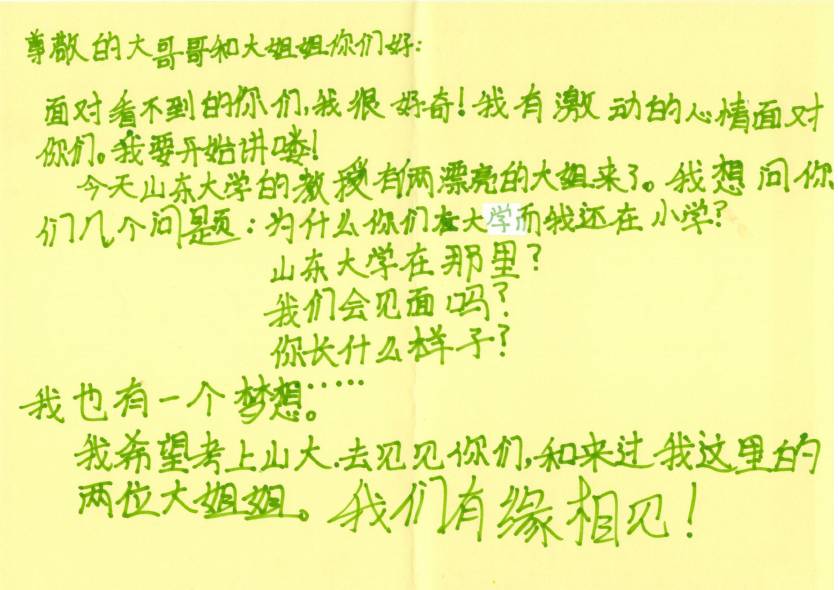 尊敬的大哥哥和大姐姐你们好:
面对看不到的你们,我很好奇!我有激动的心情面对
你们。我要开始讲喽!
今天山东大学的教授有俩漂亮的大姐来了。我想问你
们几个问题:为什么你们在大学而我还在小学?
山东大学在那里?
我们会见面吗?
你长什么样子?
我也有一个梦想。……
我希望考上山大.去见见你们,和来过我这里的
两位大姐姐。我们有缘相见!